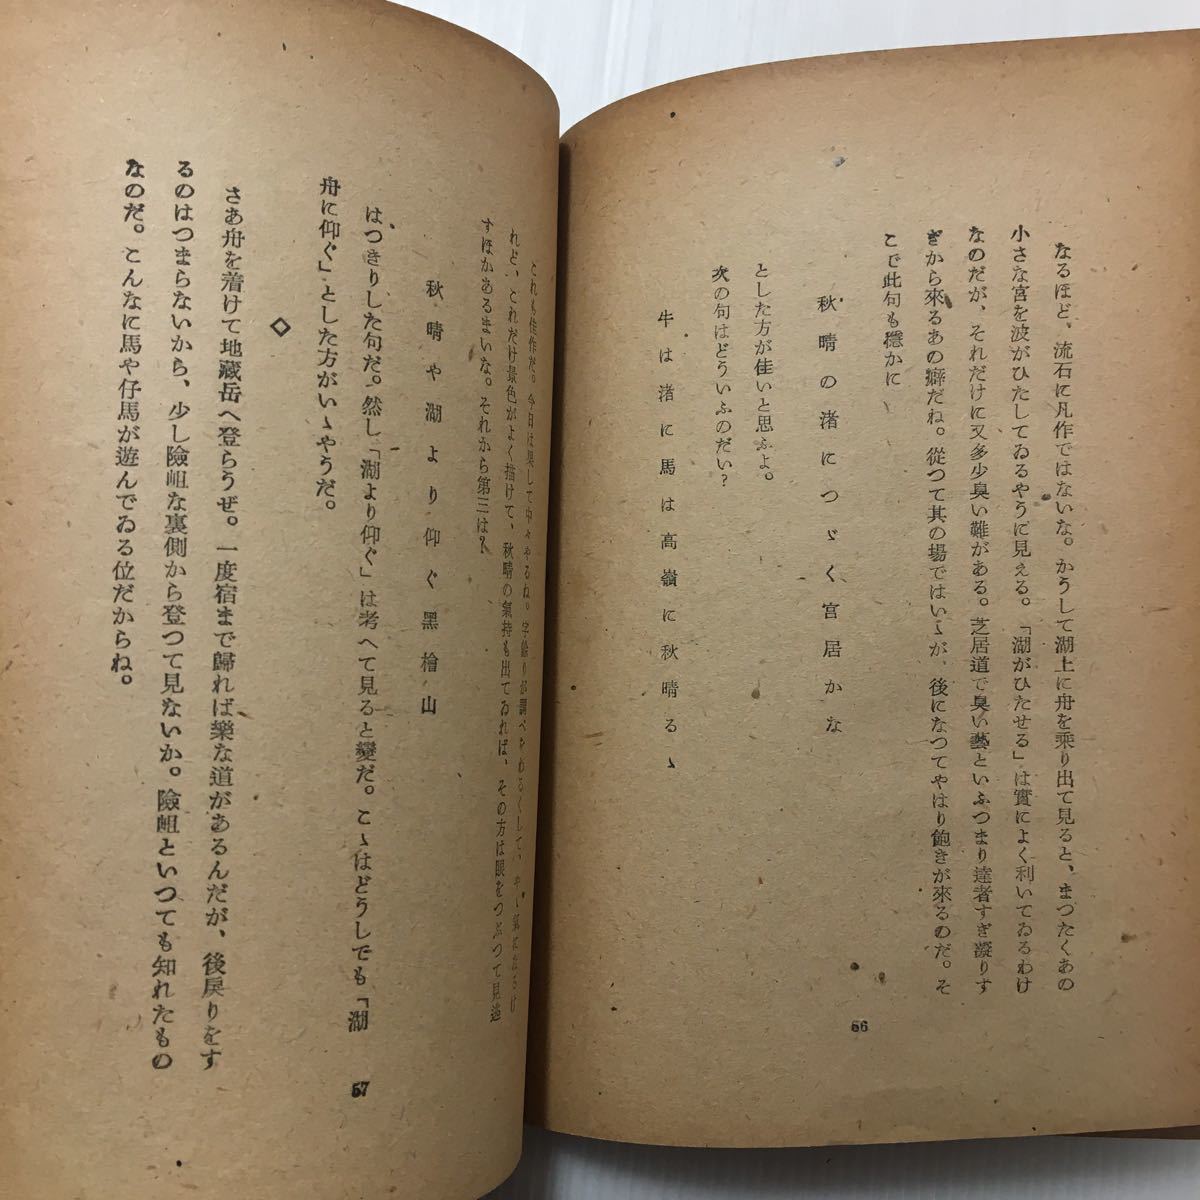 なるほど、流石に凡作ではないな。かうして湖上に舟を乘り出て見ると、まつたくあの
小さな宮を波がひたしてゐるやうに見える。「湖がひたせる」は實によく利いてゐるわけ
なのだが、それだけに又多少臭い難がある。芝居道で臭い藝といふつまり達者すぎ凝りす
ぎから來るあの癖だね。從つて其の場ではいゝが、後になつてやはり飽きが來るのだ。そ
こで此句も穩かに
秋晴の渚につゞく宮居かな
とした方が佳いと思ふよ。
次の句はどういふのだい?
牛は渚に馬は高嶺に秋晴るゝ
56
これも佳作だ。今日は果して中々やるね。字餘りが調べをわるくして、やゝ氣になるけ
れど、これだけ景色がよく描けて、秋晴の氣持も出てゐれば、その方は眼をつぶつて見逃
すほかあるまいな。それから第三は?
秋晴や湖より仰ぐ黑檜山
はつきりした句だ。然し「湖より仰ぐ」は考へて見ると變だ。こゝはどうしても「湖
舟に仰ぐ」とした方がいゝやうだ。
◇
さあ舟を着けて地藏岳へ登らうぜ。一度宿まで歸れば樂な道があるんだが、後戻りをす
るのはつまらないから、少し險岨な裏側から登つて見ないか。險岨といつても知れたもの
なのだ。こんなに馬や仔馬が遊んでゐる位だからね。
57